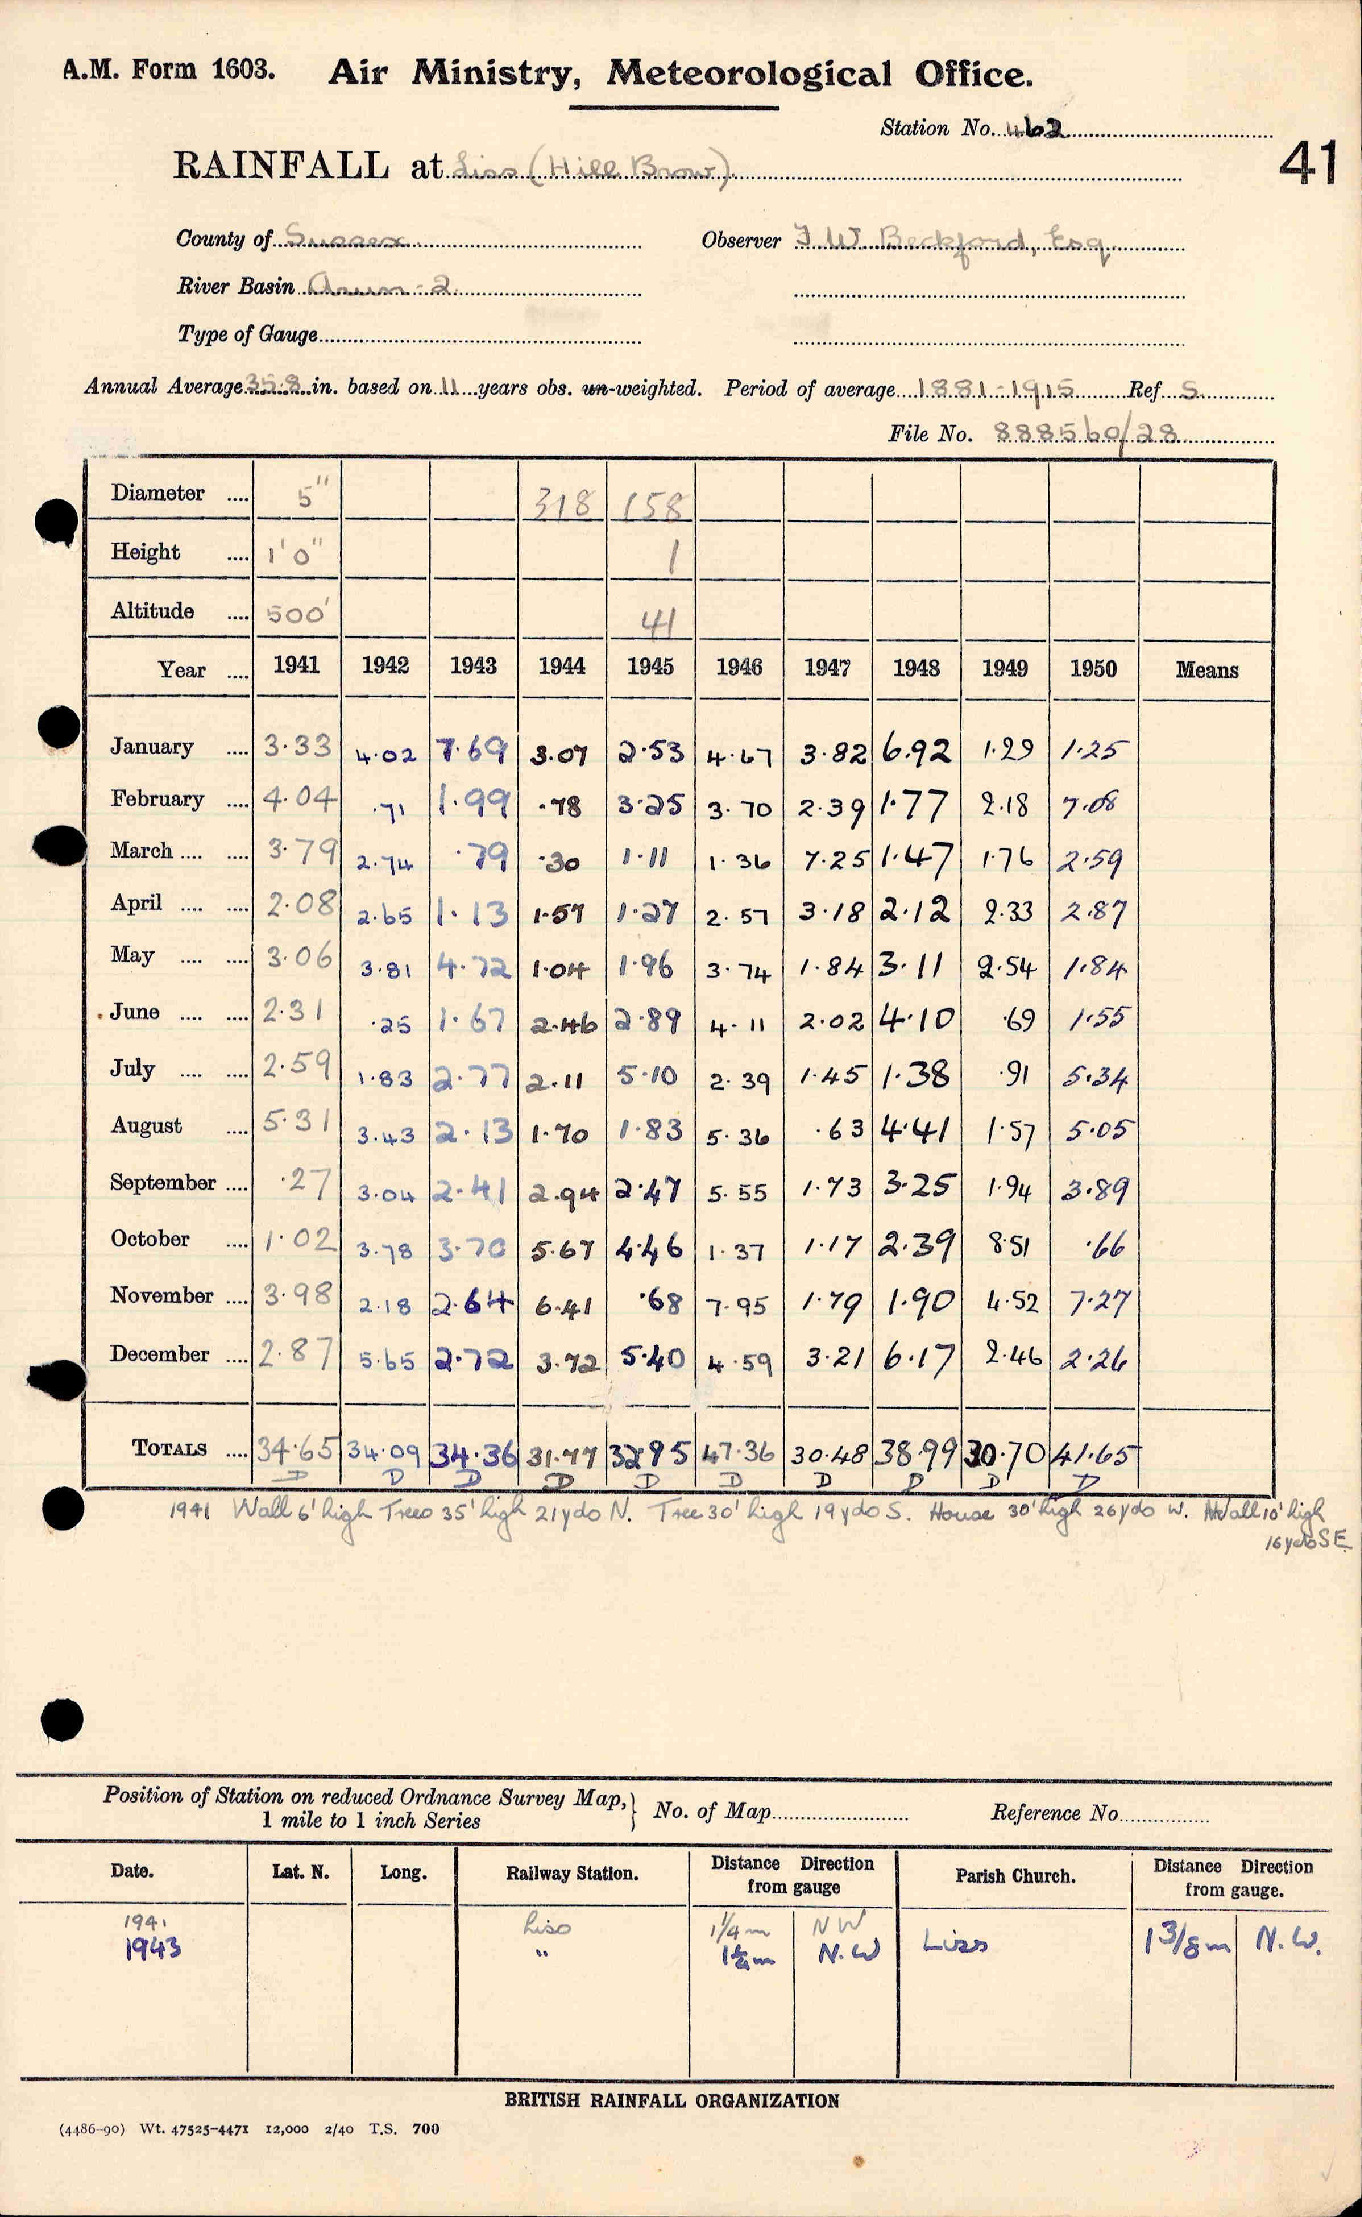 A.M. Form 1603. Air Ministry, Meteorological Office.
Station No. 462
41
RAINFALL at Liss (Hill Brow)
County of Sussex Observer F W Beckford, Esq
River Basin Arun-2
Type of Gauge
Annual Average 35.8 in. based on 11 years obs. un-weighted. Period of average 1881-1915 Ref S
File No. 888560/28
Diameter .... 5" 318 158
Height .... 1'0" 1
Altitude .... 500' 41
Year .... 1941 1942 1943 1944 1945 1946 1947 1948 1949 1950 Means
January .... 3.33 4.02 7.69 3.07 2.53 4.67 3.82 6.92 1.29 1.25
February .... 4.04 .71 1.99 .78 3.25 3.70 2.39 1.77 2.18 7.08
March .... .... 3.79 2.74 .79 .30 1.11 1.36 7.25 1.47 1.76 2.59
April .... .... 2.08 2.65 1.13 1.57 1.27 2.57 3.18 2.12 2.33 2.87
May .... .... 3.06 3.81 4.72 1.04 1.96 3.74 1.84 3.11 2.54 1.84
June .... .... 2.31 .25 1.67 2.46 2.89 4.11 2.02 4.10 .69 1.55
July .... .... 2.59 1.83 2.77 2.11 5.10 2.39 1.45 1.38 .91 5.34
August .... 5.31 3.43 2.13 1.70 1.83 5.36 .63 4.41 1.57 5.05
September .... .27 3.04 2.41 2.94 2.47 5.55 1.73 3.25 1.94 3.89
October .... 1.02 3.78 3.70 5.67 4.46 1.37 1.17 2.39 8.51 .66
November .... 3.98 2.18 2.64 6.41 .68 7.95 1.79 1.90 4.52 7.27
December .... 2.87 5.65 2.72 3.72 5.40 4.59 3.21 6.17 2.46 2.26
TOTALS .... 34.65 34.09 34.36 31.77 32.95 47.36 30.48 38.99 30.70 41.65
D D D D D D D D D D
1941 Wall 6' high Trees 35' high 21 yds N. Tree 30' high 19 yds S. House 30' high 26 yds W. Wall 10' high
16 yds SE
Position of Station on reduced Ordnance Survey Map,} No. of Map Reference No.
1 mile to 1 inch Series
Date. Lat. N. Long. Railway Station. Distance Direction from gauge Parish Church. Distance Direction from gauge.
1941 Liss 1¼m NW
1943 " 1¼m N.W Liss 1 3/8m N.W.
BRITISH RAINFALL ORGANIZATION
(4486-90) Wt. 47525-4471 12,000 2/40 T.S. 700